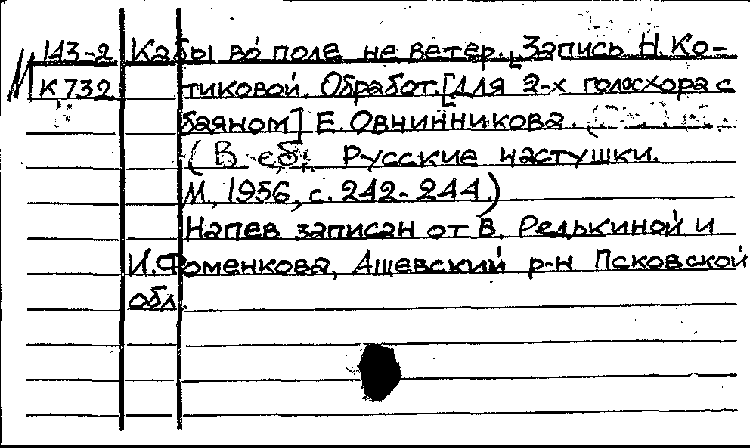 143-2 Кабы во поле не ветер. Запись Н. Ко-
М К 732 тиковой. Обработ. [для 2-х голосхора с
баяном] Е. Овчинникова.
(В сб.: Русские частушки.
М., 1956, с. 242-244.)
Напев записан от В. Редькиной и
И. Фоменкова, Ашевский р-н Псковской
обл.